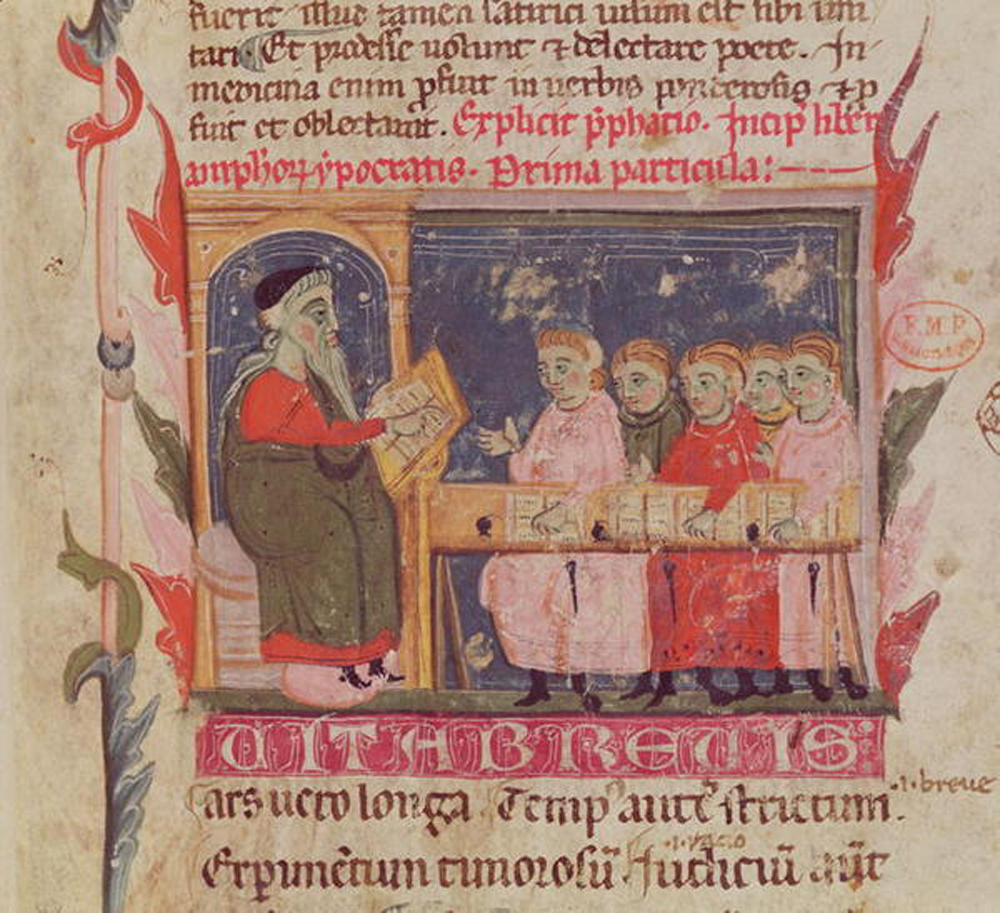 fuerit illud tamen satirici uisum est sibi imi
tari. Et prodesse uolunt ⁊ delectare poete. In
medicina enim ꝓfuit in uerbis ponderosis ⁊ ꝓ
fuit et oblectauit. Explicit p̄phatio. Incip̄ liber
amphoꝝ ypocratis. Prima particula:
UITA BREUIS:
ars uero longa Tempꝰ aut̄ē strictum. .i. breue
Exꝑimētum timorosū Iudiciū aūt